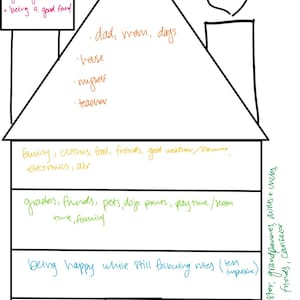 • being a good friend
• dad, mom, dogs
• house
• myself
• teacher
family, clothes, food, friends, good weather/summer,
electronics, air
grades, friends, pets, dojo points, play time/screen
time, family
being happy while still following rules (less
impulsive)
grandparents, aunts + uncles,
friends,